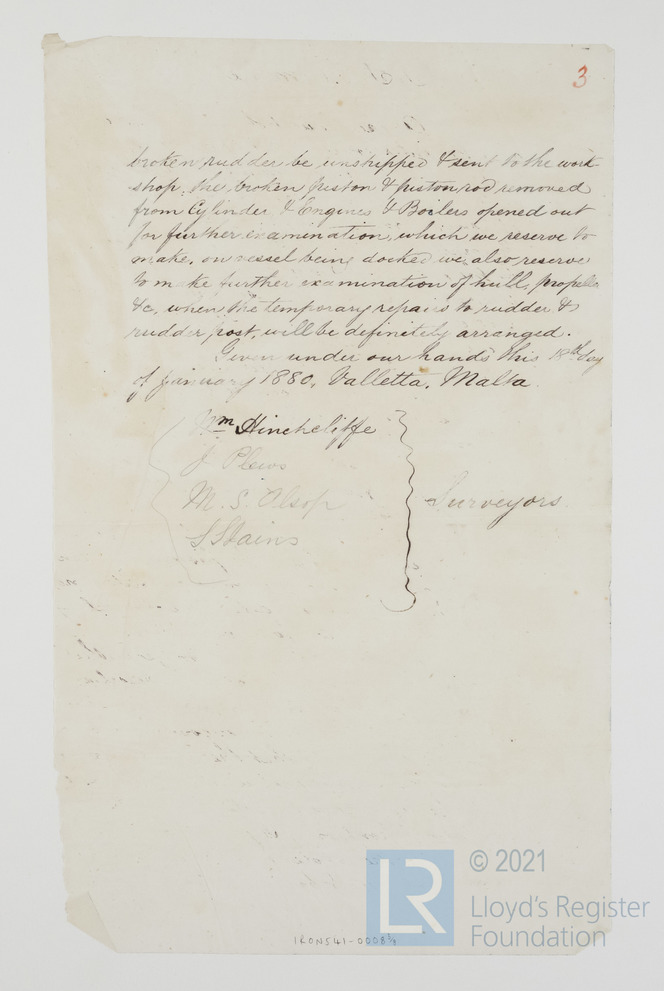 3
broken rudder be unshipped & sent to the work
shop, the broken piston & piston rod removed
from Cylinder & Engines & Boilers opened out
for further examination, which we reserve to
make, on vessel being docked we also reserve
to make further examination of hull, propeller
&c, when the temporary repairs to rudder &
rudder post, will be definitely arranged.
Given under our hands this 18th day
of January 1880, Valletta, Malta.
Wm Hinchcliffe
J Plews
M. S. Alsop
Surveyors
S Stains
LR
© 2021
Lloyd's Register
Foundation
IRON541-0008